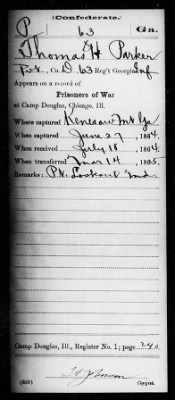 (Confederate.)
P 63 Ga.
Thomas H Parker
Pvt., Co. D. 63 Reg't Georgia Inf
Appears on a record of
Prisoners of War
at Camp Douglas, Chicago, Ill.
Where captured Kenesaw Mt Ga
When captured June 27, 1864.
When received July 18, 1864.
When transferred Mar 14, 1865.
Remarks: Pt. Lookout Md.
Camp Douglas, Ill., Register No. 1; page 240
Copyist.